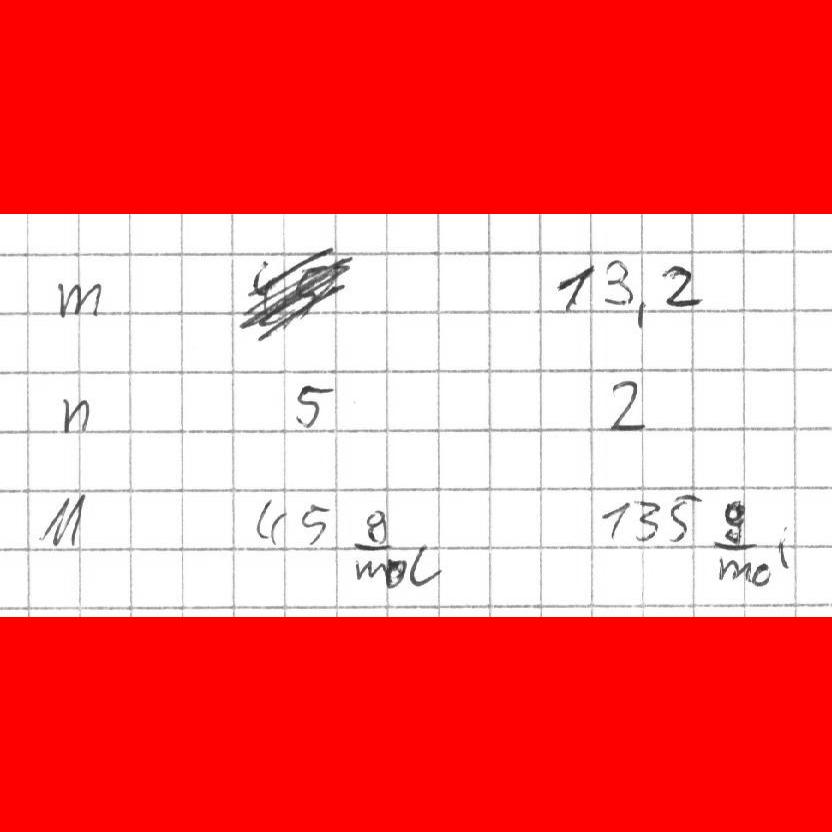 m 13,2
n 5 2
M 45 g/mol 135 g/mol